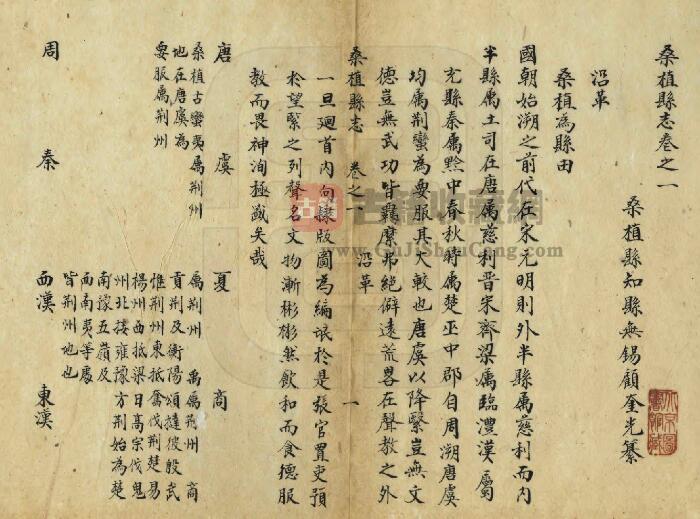 桑植縣志卷之一
桑植縣知縣無錫顧奎光纂
沿革
桑植為縣由
國朝始溯之前代在宋元明則外半縣屬慈利而內
半縣屬土司在唐屬慈利晉宋齊梁屬臨澧漢屬
充縣秦屬黔中春秋時屬楚巫中郡自周溯唐虞
均屬荆蠻為要服其大較也唐虞以降緊豈無文
德豈無武功皆羈縻弗絕僻遠荒畧在聲教之外
桑植縣志 卷之一 沿革 一
一旦廻首內向版圖為編氓於是張官置吏預
於望緊之列聲名文物漸彬彬然飲和而食德服
教而畏神洵極盛矣哉
唐 虞 夏 商
桑植古蠻夷屬荆州
地在唐虞為
要服屬荆州
屬荆州 禹屬荆州 商
貢荆及衡陽頌撻彼殷武
惟荆州東抵奮伐荆楚易
楊州西抵梁日高宗伐鬼
州北接雍豫方荆始為楚
南豫五嶺及
而南夷等處
皆荆州地也
周 秦 西漢 東漢
古籍收藏網
www.GuJiShouCang.com